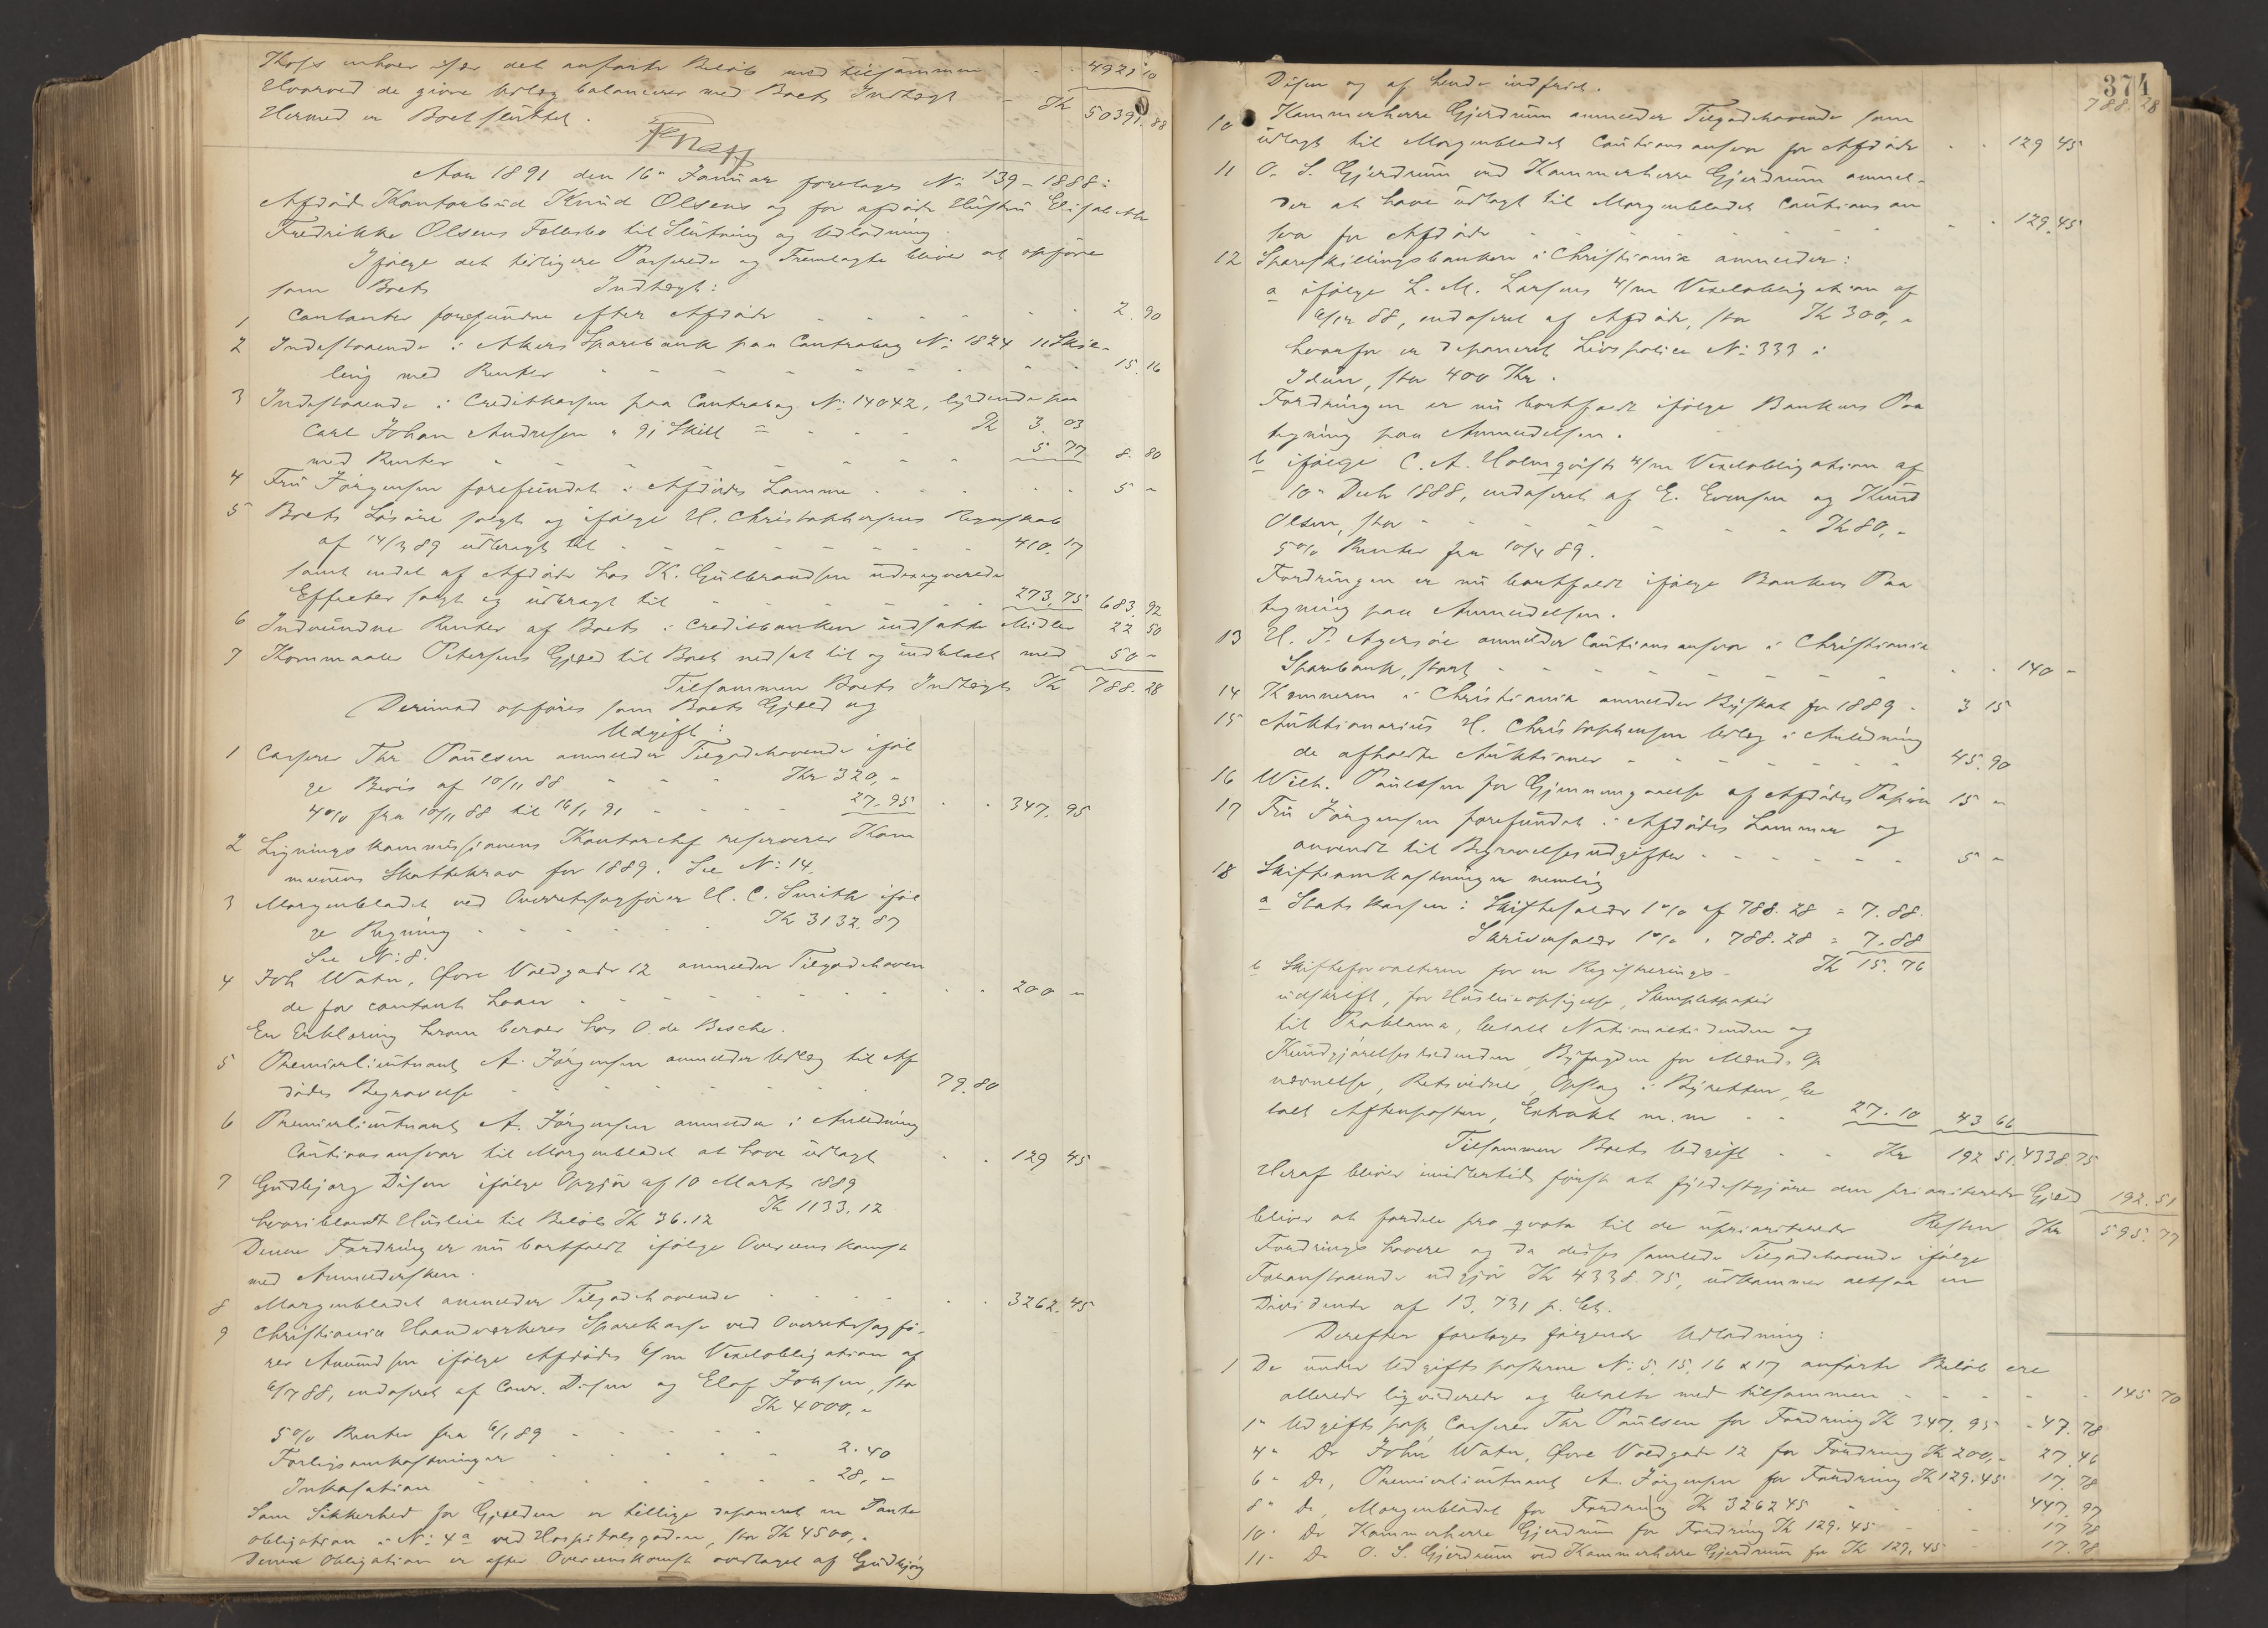 det anførte Beløb med tilsammen - - 4921 10
Hvorved de givne Udlæg balancerer med Boets Indtægt - Kr 50391.88
Hermed er Boet sluttet.
Aar 1891 den 16" Januar foretoges No 139 - 1888:
Afdøde Kontorbud Knud Olsens og før afdøde Hustru Elisabeth
Fredrikke Olsens Fællesbo til Slutning og Udlodning.
Ifølge det tidligere Passerede og Fremlagte bliver at opføre
som Boets Indtægt:
1 Contanter forefundne efter Afdøde - - - - 2.90
2 Indestaaende i Akers Sparebank paa Contrabog No 1824 11 Skil-
ling med Renter - - - - 15.16
3 Indestaaende i Creditkassen paa Contrabog No 14042, lydende paa
Carl Johan Andresen " 91 Skill = - - - Kr 3.03
med Renter - - - - 5 77 8.80
4 Fru Jørgensen forefundet i Afdødes Lomme - - - 5 -
5 Boets Løsøre solgt og ifølge H. Christophersens Regnskab
af 14/3 89 udbragt til - - - - 410.17
samt endel af Afdøde hos K. Gulbrandsen
Effecter solgt og udbragt til - - - 273,75 683,92
6 Indvundne Renter af Boets i Creditbanken indsatte Midler 22 50
7 Petersens Gjæld til Boet nedsat til og indbetalt med 50 -
Tilsammen Boets Indtægt Kr 788.28
Derimod opføres som Boets Gjæld og
Udgift:
1 Casserer Thr Paulsen anmelder Tilgodehavende iføl
ge Bevis af 10/11 88 - - - Kr 320,-
4% fra 10/11 88 til 16/1 91 - - - 27.95 - - 347.95
2 Ligningskommissionens Kontorchef reserverer Kom
munens Skattekrav for 1889. See No 14.
3 Morgenbladet ved Overretssagfører H. C. Smith iføl
ge Regning - - - - Kr 3132.87
See No 8.
4 Joh Water, Øvre Voldgade 12 anmelder Tilgodehaven
de for contant Laan - - - - 200 -
En Erklæring herom beroer hos O. de Besche.
5 Premierlieutnant A. Jørgensen anmelder Udlæg til Af
dødes Begravelse - - - - 79.80
6 Premierlieutnant A. Jørgensen anmelder i Anledning
Cautionsansvar til Morgenbladet at have udlagt - - 129 45
7 Gudbjørg Disen ifølge Opgjør af 10 Marts 1889
Kr 1133.12
hvoriblandt Husleie til Beløb Kr 36.12
Denne Fordring er nu bortfaldt ifølge Overenskomst
med Anmeldersken.
8 Morgenbladet anmelder Tilgodehavende - - - - 3262.45
9 Christiania Haandværkeres Sparekasse ved Overretssagfø-
rer Amundsen ifølge Afdødes 6/m Vexelobligation af
6/7 88, endosseret af Conr. Disen og Elof Johsen, stor
Kr 4000,-
5% Renter fra 6/1 89 - - - -
Forligsomkostninger - - - - 2.40
Inkasation - - - - 28,-
Som Sikkerhed for Gjælden er tillige deponeret en Pante
obligation i No 4a ved Hospitalsgaden, stor Kr 4500,-
Denne Obligation er efter Overenskomst overtaget af Gudbjørg
374
Disen og af hende indfriet.
788.28
10 Kammerherre Gjerdrum anmelder Tilgodehavende som
udlagt til Morgenbladet Cautionsansvar for Afdøde - - 129 45
11 O. S. Gjerdrum ved Kammerherre Gjerdrum anmel-
der at have udlagt til Morgenbladet Cautionsan
svar for Afdøde - - - - 129.45
12 Spareskillingsbanken i Christiania anmelder:
a ifølge L. M. Larsens 4/m Vexelobligation af
6/12 88, endosseret af Afdøde, stor Kr 300,-
hvorfor er deponeret Livspolice No 333 i
Idun, stor 400 Kr.
Fordringen er nu bortfaldt ifølge Bankens Paa
tegning paa Anmeldelsen.
b ifølge C. A. Holmqvists 4/m Vexelobligation af
10" Decbr 1888, endosseret af E. Evensen og Knud
Olsen, stor - - - - Kr 80,-
5% Renter fra 10/4 89.
Fordringen er nu bortfaldt ifølge Bankens Paa
tegning paa Anmeldelsen.
13 H. P. Agersøe anmelder Cautionsansvar i Christiania
Sparebank, stort - - - - 140 -
14 Kemneren i Christiania anmelder Byskat for 1889 - 3 15
15 Auktionarius H. Christophersen Udlæg i Anledning
de afholdte Auktioner - - - - 45.90
16 Wilh. Paulssen for Gjennemgaaelse af Afdødes Papirer 15 -
17 Fru Jørgensen forefundet i Afdødes Lomme og
anvendt til Begravelsesudgifter - - - - 5 -
18 Skifteomkostninger nemlig
a Statskassen i Skiftesalær 1% af 788.28 = 7.88.
Skriversalær 1% " 788.28 = 7.88
Kr 15.76
b Skifteforvalteren for en Registrerings-
udskrift, for Husleieopsigelse, Stempletpapir
til Proklama, betalt Nationaltidenden og
Kundgjørelsestidenden, Byfogden for Mænds Op
nævnelse, Retsvidner, Opslag i Byretten, be
talt Aftenposten, Extrakt m.m - - 27.10 43 66
Tilsammen Boets Udgift - - Kr 192 51 4338.75
Heraf bliver imidlertid først at fyldestgjøre den prioriterede Gjæld 192.51
Resten Kr 595.77
bliver at fordele pro qvota til de uprioriterede
Fordringshavere og da disses samlede Tilgodehavende ifølge
Foranstaaende udgjør Kr 4338.75, udkommer altsaa en
Dividende af 13.731 p. Ct.
Derefter foretoges følgende Udlodning:
1 De under Udgiftsposterne No 5, 15, 16 & 17 anførte Beløb ere
allerede liqviderede og betalte med tilsammen - - - - 145 70
1" Udgiftspost, Casserer Thr Paulsen for Fordring Kr 347.95 - 47.78
4" Do John Water, Øvre Voldgade 12 for Fordring Kr 200,- 27.46
6" Do, Premierlieutnant A. Jørgensen for Fordring Kr 129.45 17.78
8" Do, Morgenbladet for Fordring Kr 3262 45 - - 447.97
10" Do Kammerherre Gjerdrum for Fordring Kr 129.45 - - 17.78
11" Do O. S. Gjerdrum ved Kammerherre Gjerdrum for Kr 129.45 - 17.78